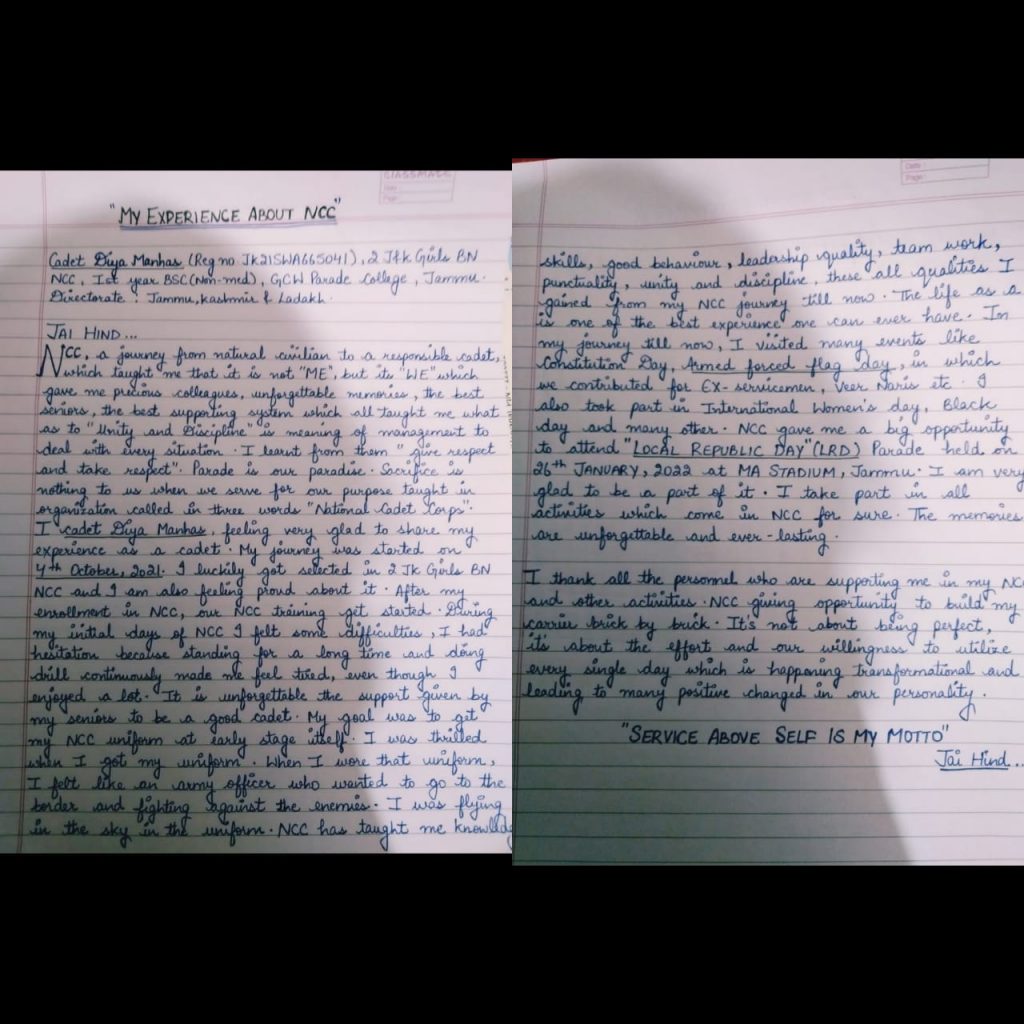 CLASSMATE
Date
Page
"MY EXPERIENCE ABOUT NCC"
Cadet Diya Manhas (Reg no JK21SWA665041), 2 J&k Girls BN
NCC, Ist year BSC(Non-med), GCW Parade College, Jammu.
Directorate : Jammu, kashmir & Ladakh.
JAI HIND...
NCC, a journey from natural civilian to a responsible cadet,
which taught me that it is not "ME", but its "WE" which
gave me precious colleagues, unforgettable memories, the best
seniors, the best supporting system which all taught me what
as to "Unity and Discipline" is meaning of management to
deal with every situation. I learnt from them "give respect
and take respect". Parade is our paradise. Sacrifice is
nothing to us when we serve for our purpose taught in
organization called in three words "National Cadet Corps".
I cadet Diya Manhas, feeling very glad to share my
experience as a cadet. My journey was started on
4th October, 2021. I luckily got selected in 2 Jk Girls BN
NCC and I am also feeling proud about it. After my
enrollment in NCC, our NCC training get started. During
my initial days of NCC I felt some difficulties, I had
hesitation because standing for a long time and doing
drill continuously made me feel tired, even though I
enjoyed a lot. It is unforgettable the support given by
my seniors to be a good cadet. My goal was to get
my NCC uniform at early stage itself. I was thrilled
when I got my uniform. When I wore that uniform,
I felt like an army officer who wanted to go to the
border and fighting against the enemies. I was flying
in the sky in the uniform. NCC has taught me knowledg
Date :
Page :
skills, good behaviour, leadership quality, team work,
punctuality, unity and discipline, these all qualities I
gained from my NCC journey till now. The life as a
is one of the best experience one can ever have. In
my journey till now, I visited many events like
Constitution Day, Armed forced flag Day, in which
we contributed for Ex-servicemen, Veer Naris etc. I
also took part in International Women's day, Black
day and many other. NCC gave me a big opportunity
to attend "LOCAL REPUBLIC DAY" (LRD) Parade held on
26th JANUARY, 2022 at MA STADIUM, Jammu. I am very
glad to be a part of it. I take part in all
activities which come in NCC for sure. The memories
are unforgettable and ever-lasting.
I thank all the personnel who are supporting me in my NCC
and other activities. NCC giving opportunity to build my
carrier brick by brick. It's not about being perfect,
it's about the effort and our willingness to utilize
every single day which is happening transformational and
leading to many positive changed in our personality.
"SERVICE ABOVE SELF IS MY MOTTO"
Jai Hind...